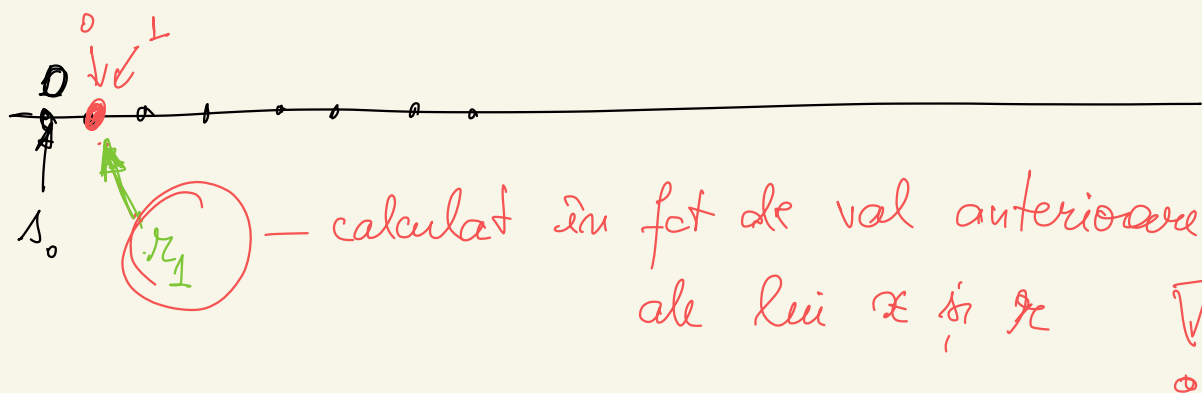 0 1
0
s₀
r₁ — calculat în fct de val anterioare
ale lui x și r !